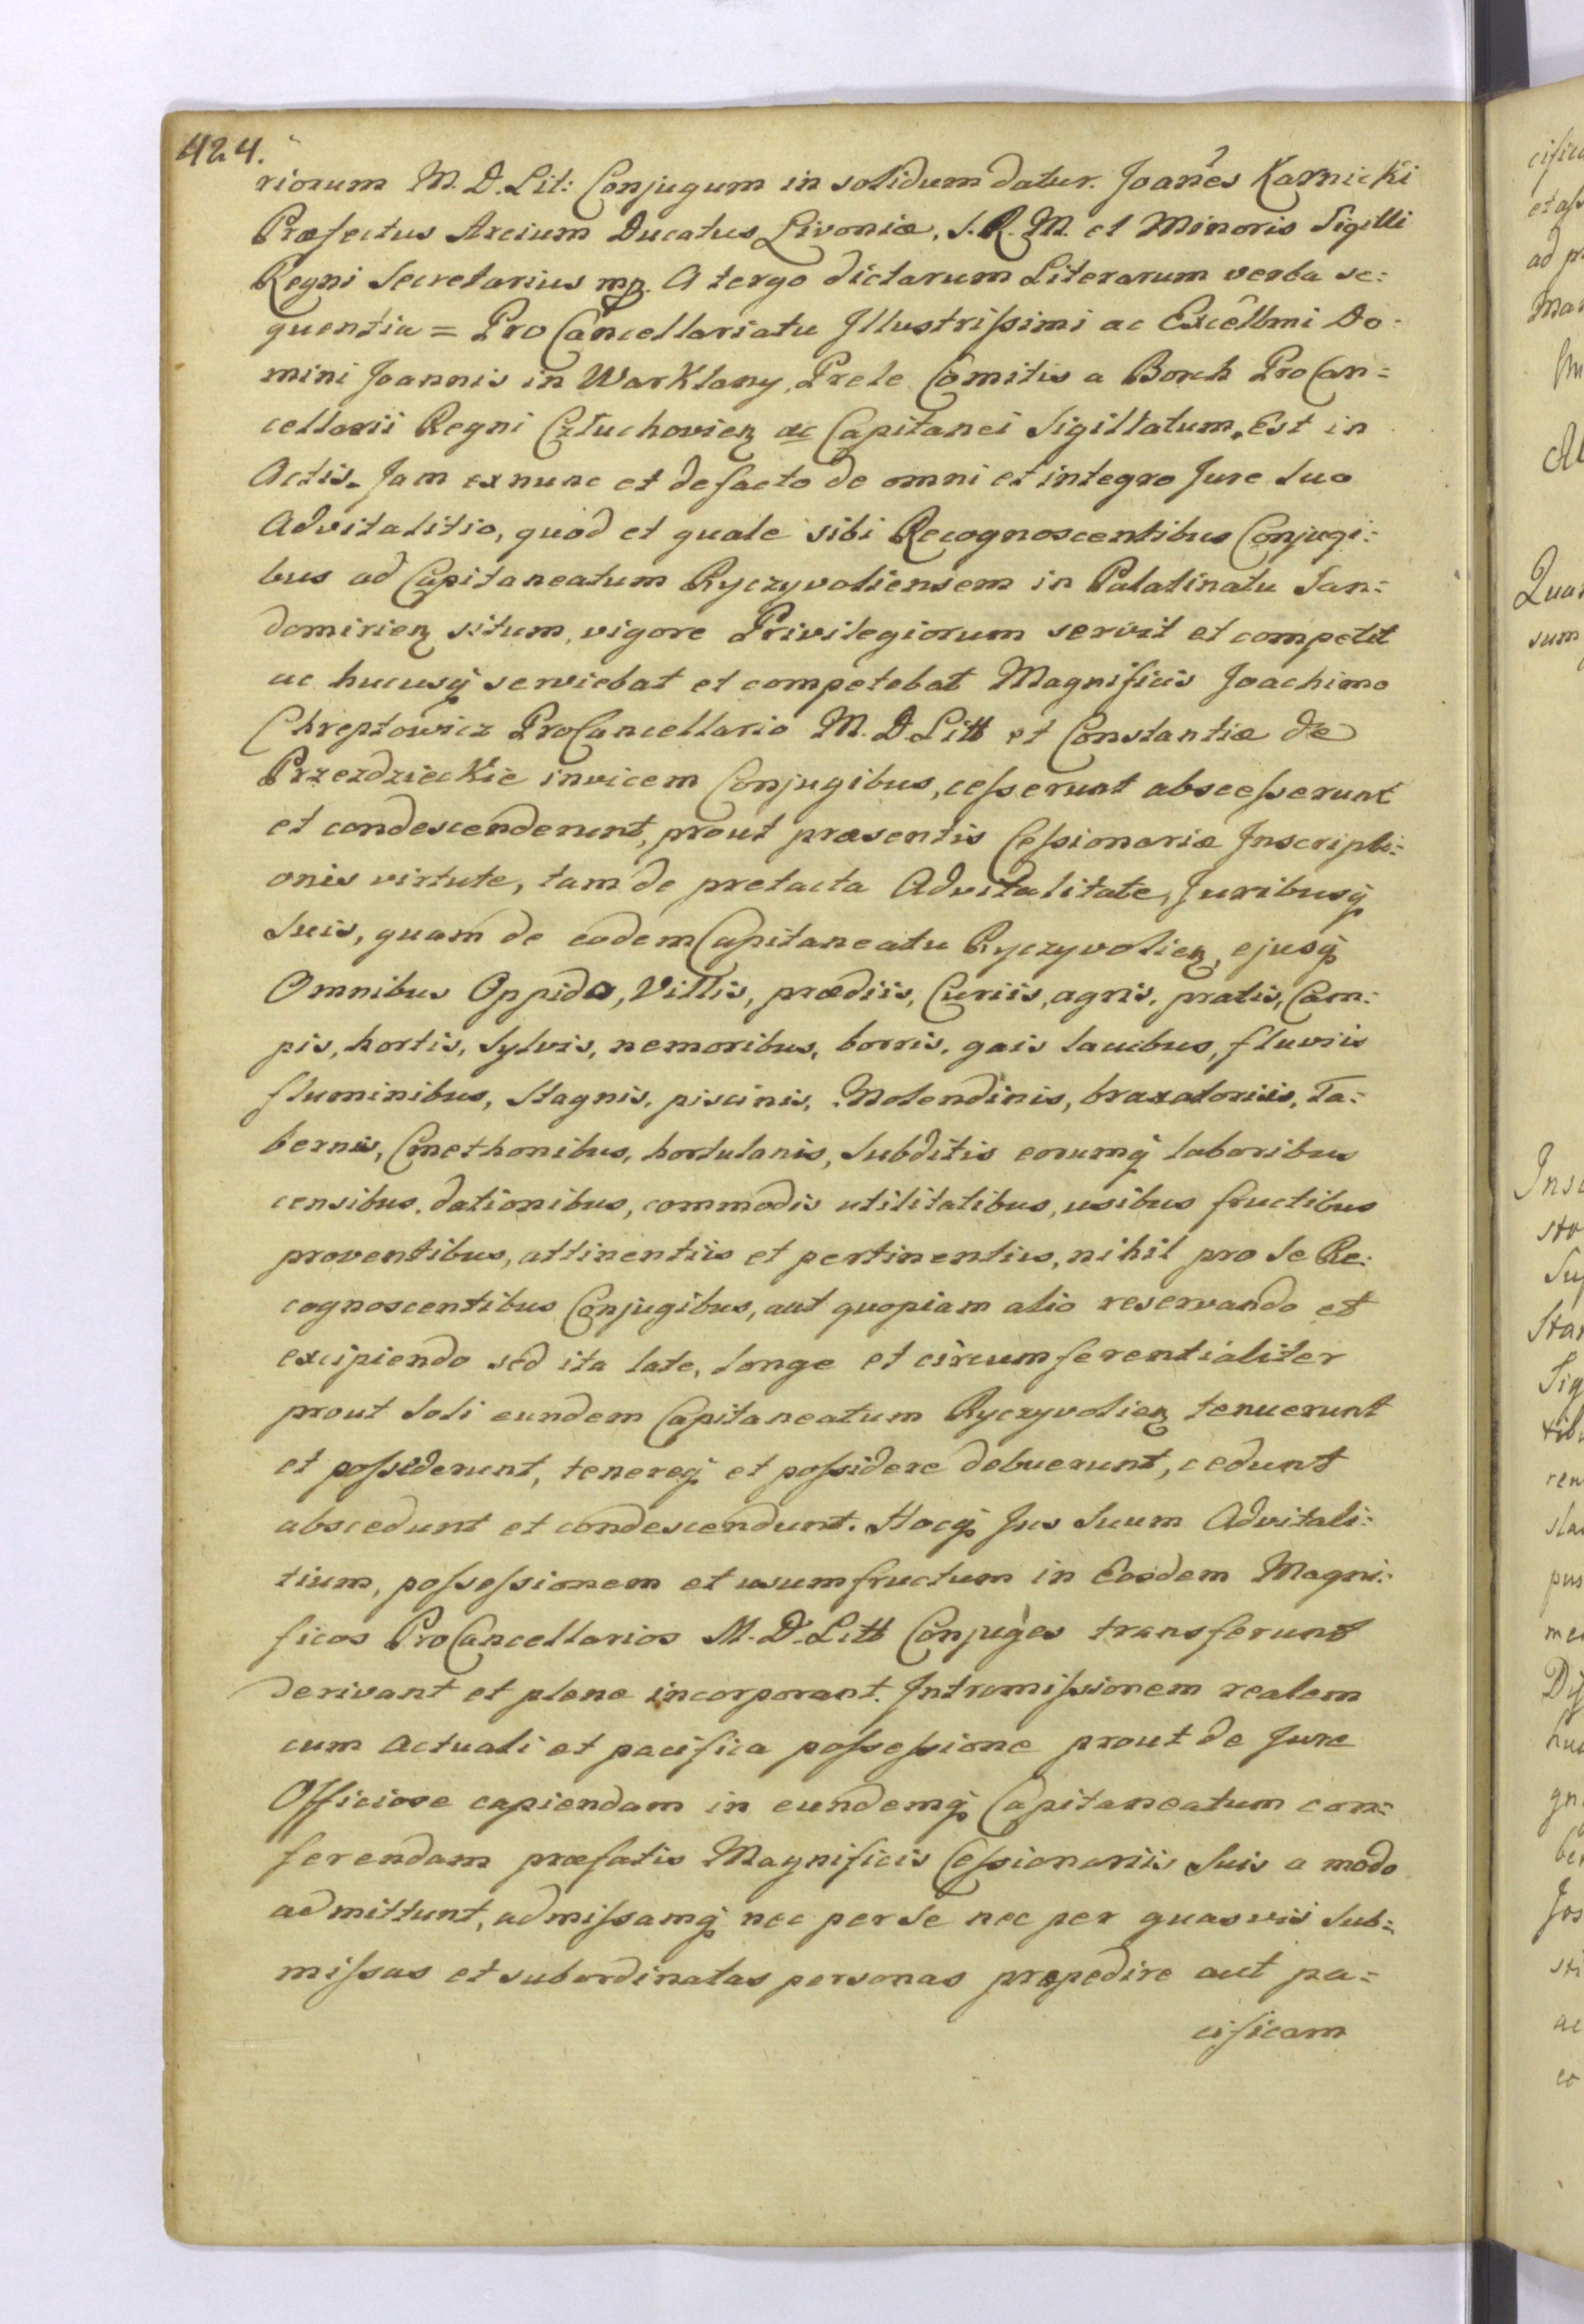 424.
riorum M. D. Lit: Conjugum in solidum datur. Joanês Karnicki
Præfectus Arcium Ducatus Livoniæ, S. R. M. et Minoris Sigilli
Regni Secretarius mp. A tergo dictarum Literarum verba se:
quentia = Pro Cancellariatu Illustrissimi ac Excêllmi Do:
mini Joannis in Warklany, Prele Comitis a Borch ProCan=
cellarii Regni Człuchovieȵ ac Capitanei Sigillatum, Est in
Actis. Jam ex nunc et de facto de omni et integro Jure Suo
Advitalitio, quod et quale sibi Recognoscentibus Conjugi:
bus ad Capitaneatum Ryczyvoliensem in Palatinatu San=
domirieȵ situm, vigore Privilegiorum servit et competit
ac hucusq̃ serviebat et competebat Magnificis Joachimo
Chreptowicz ProCancellario M. D. Litt et Constantiæ de
Przezdzieckie invicem Conjugibus, cesserunt abscesserunt
et condescenderunt, prout præsentis Cessionariæ Inscripti:
onis virtute, tam de pretacta Advitalitate, Juribusq̃
Suis, quam de eodem Capitaneatu Ryczyvolieȵ, ejusq̃
Omnibus Oppido, Villis, prædiis, Curiis, agris, pratis, Cam:
pis, hortis, Sylvis, nemoribus, borris, gais lacubus, fluviis
fluminibus, Stagnis, piscinis, Molendinis, braxatoriis, Ta:
bernis, Cmethonibus, hortulanis, Subditis eorumq̃ laboribus
censibus, dationibus, commodis utilitatibus, usibus fructibus
proventibus, attinentiis et pertinentiis, nihil pro Se Re:
cognoscentibus Conjugibus, aut quopiam alio reservando et
excipiendo sed ita late, longe et circumferentialiter
prout Soli eundem Capitaneatum Ryczyvolieȵ tenuerunt
et possederunt, tenereq̃ et possidere debuerunt, cedunt
abscedunt et condescendunt. Hocq̃ Jus Suum Advitali:
tium, possessionem et usumfructum in Eosdem Magni:
ficos ProCancellarios M. D. Litt Conjuges transferunt
derivant et plene incorporant. Intromissionem realem
cum actuali et pacifica possessione prout de Jure
Officiose capiendam in eundemq̃ Capitaneatum con=
ferendam præfatis Magnificis Cessionariis Suis a modo
admittunt, admissamq̃ nec per Se nec per quasvis Sub=
missas et subordinatas personas præpedire aut pa=
cificam